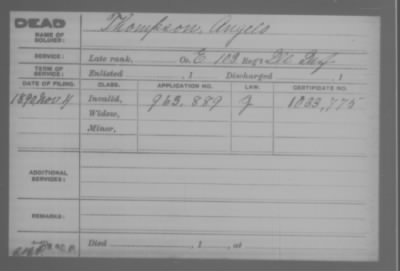 DEAD
NAME OF SOLDIER: Thompson, Angelo
SERVICE: Late rank, Co. E, 103 Reg't Ill Inf
TERM OF SERVICE: Enlisted , 1 Discharged , 1
DATE OF FILING. CLASS. APPLICATION NO. LAW. CERTIFICATE NO.
1890 Nov Invalid, 963.889 J 1033,775
Widow,
Minor,
ADDITIONAL SERVICES:
REMARKS:
Died , 1 , at